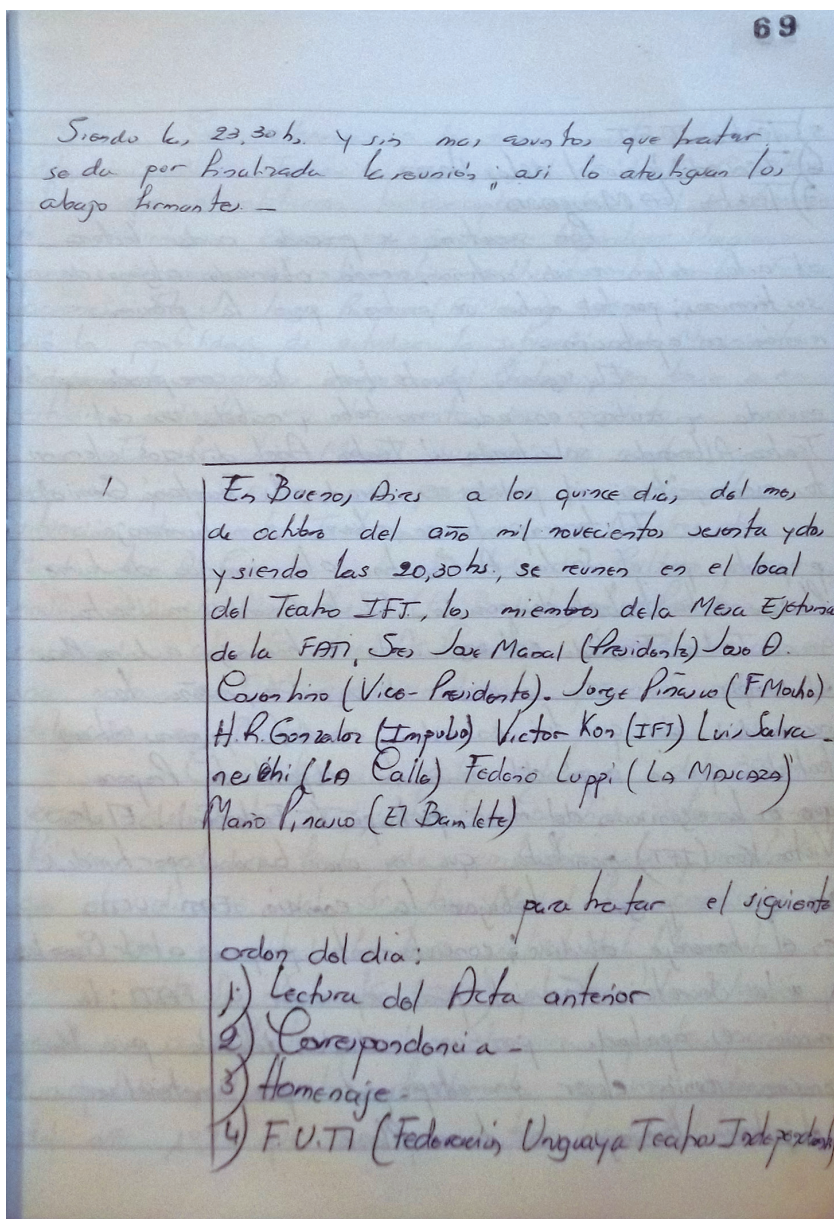 69
Siendo las 23,30 hs. y sin mas asuntos que tratar
se da por finalizada la reunión; asi lo atestiguan los
abajo firmantes. —
1
En Buenos Aires a los quince dias del mes
de octubre del año mil novecientos sesenta y dos
y siendo las 20,30 hs, se reunen en el local
del Teatro IFT, los miembros de la Mesa Ejecutiva
de la FATI, Sres Jose Marial (Presidente) Jose O.
Cosentino (Vice-Presidente). Jorge Pinasco (F Mocho)
H. R. Gonzalez (Impulso) Victor Kon (IFT) Luis Salva-
neschi (LA Calle) Federico Luppi (LA MASCARA)
Mario Pinasco (El Bamlete)
para tratar el siguiente
orden del dia:
1) Lectura del Acta anterior
2) Correspondencia -
3) Homenaje -
4) F.U.TI (Federación Uruguaya Teatros Independientes)